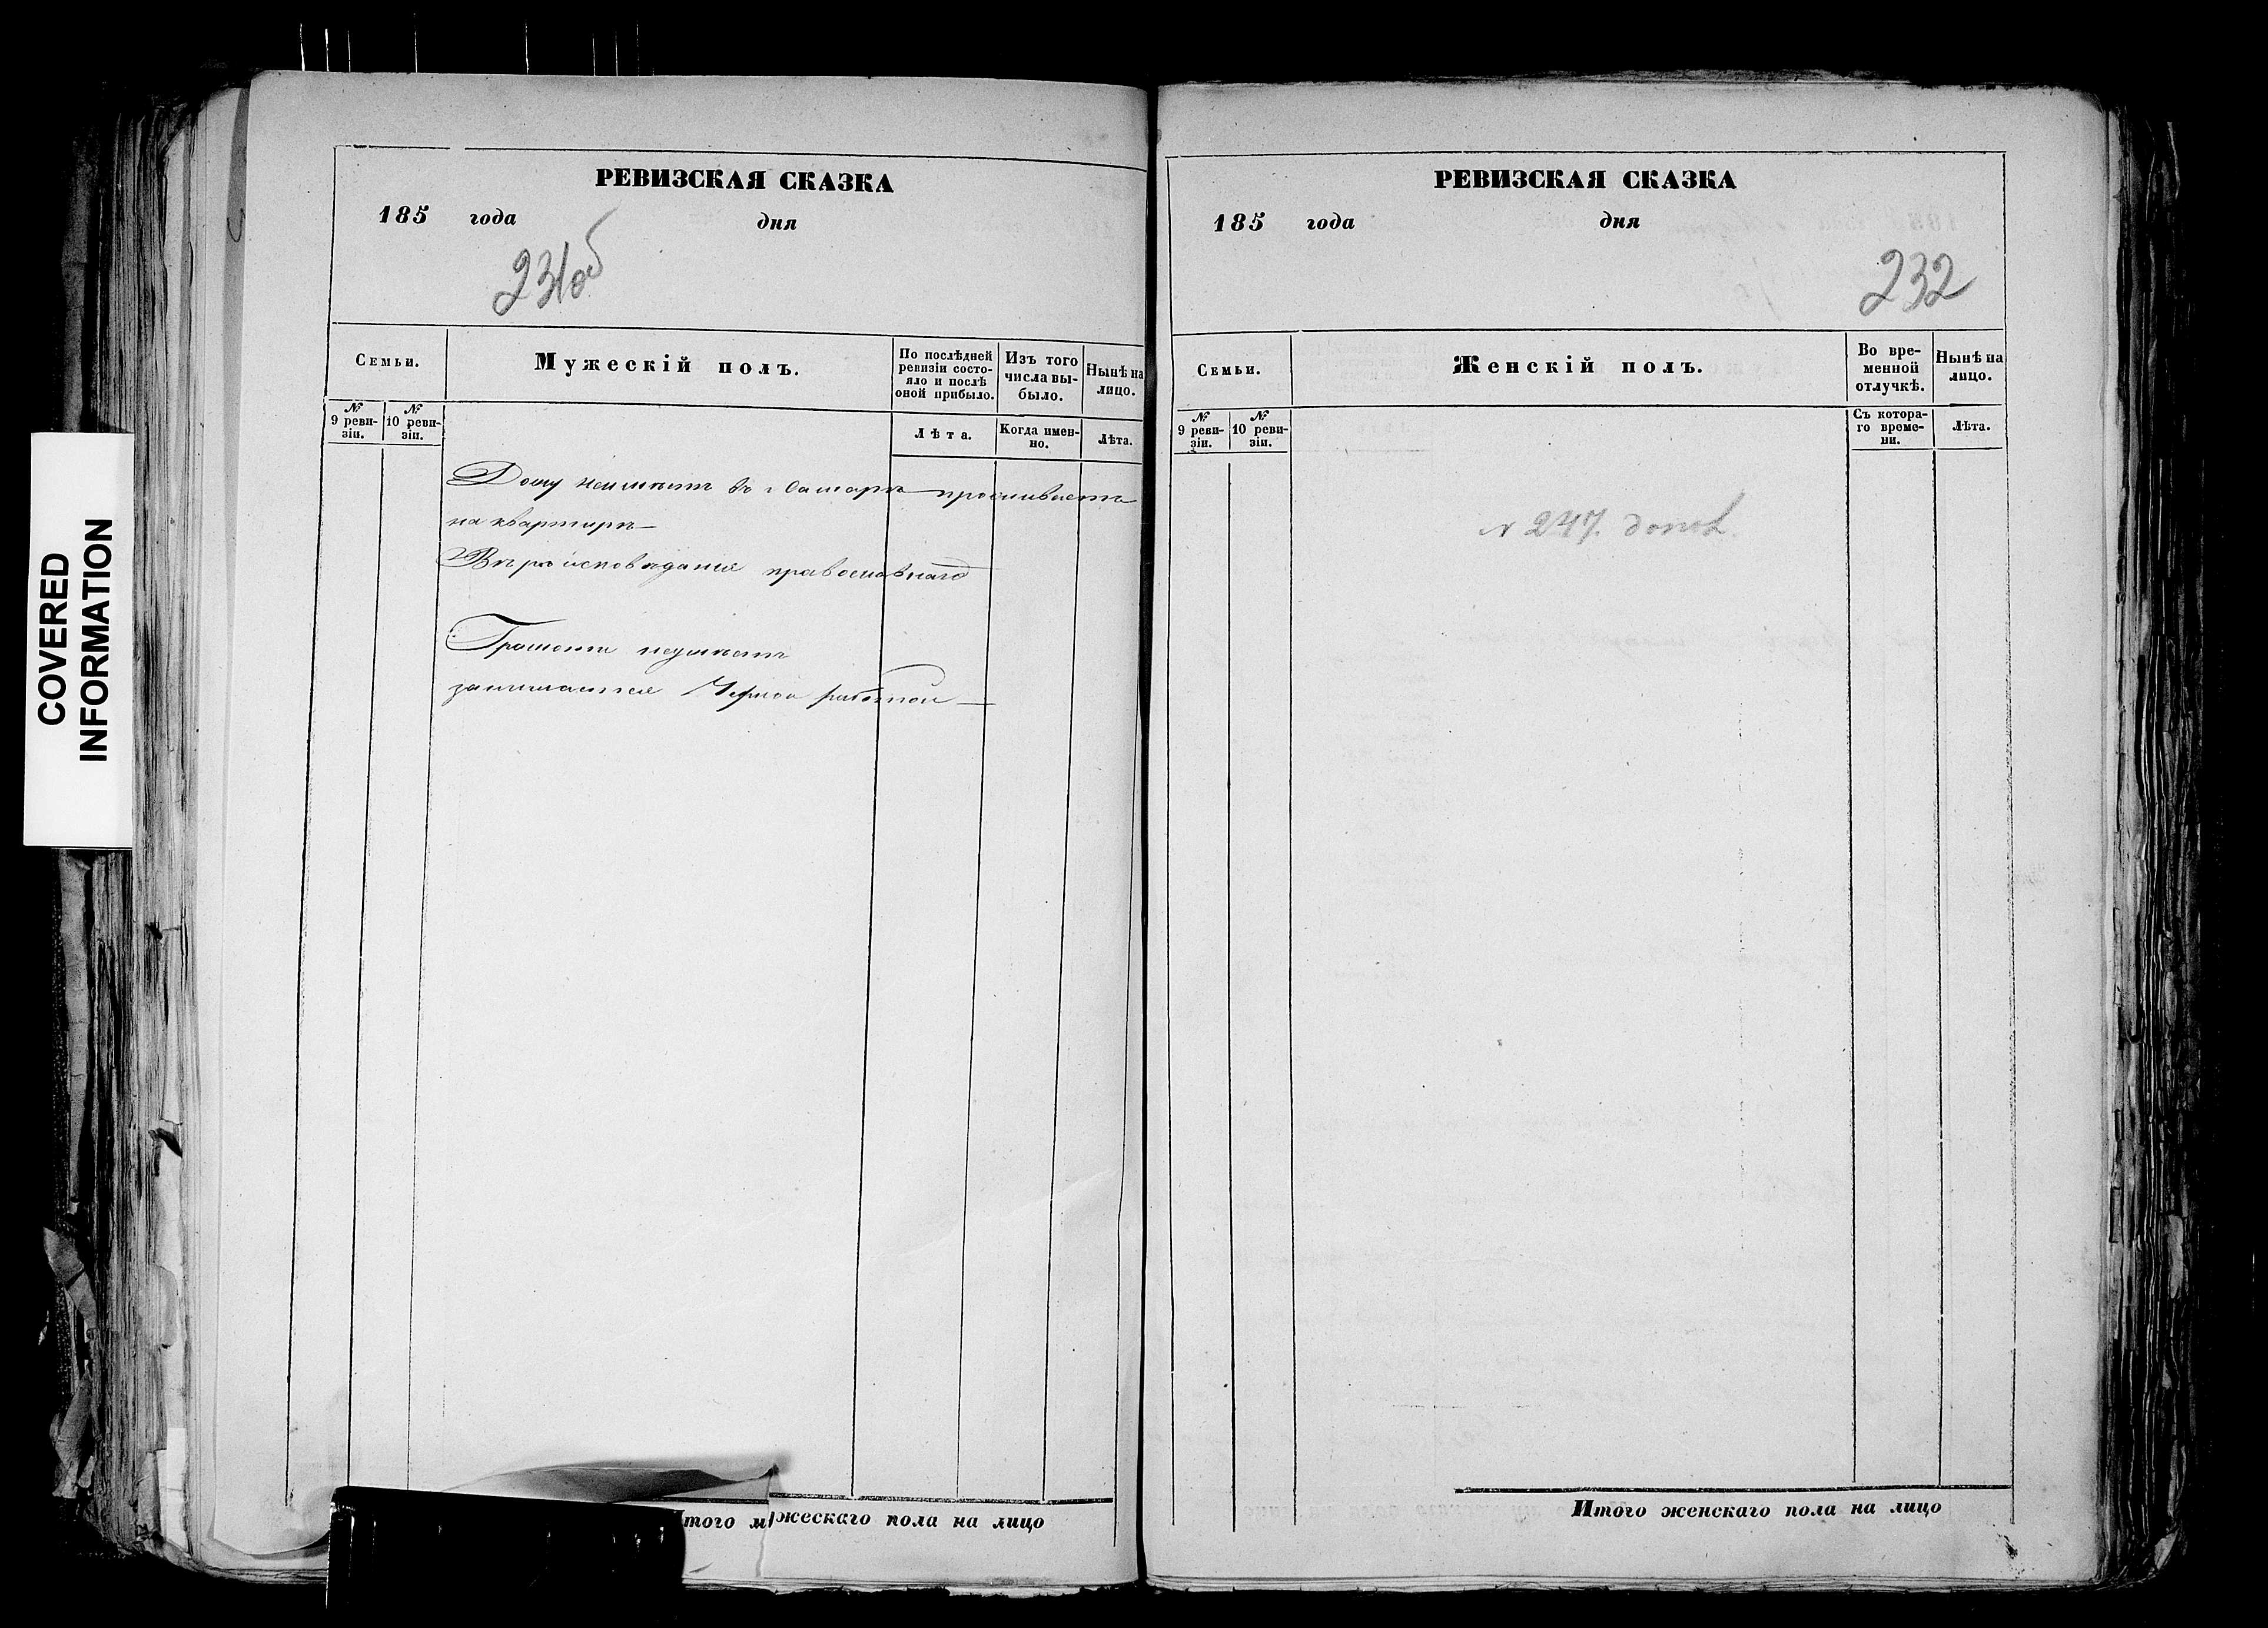 COVERED
INFORMATION
РЕВИЗСКАЯ СКАЗКА
185 года дня
231об
Семьи.
Мужескій полъ.
По послѣдней
ревизіи состо-
яло и послѣ
оной прибыло.
Изъ того
числа вы-
было.
Нынѣ на
лицо.
№
9 реви-
зіи.
№
10 реви-
зіи.
Лѣта.
Когда имен-
но.
Лѣта.
Дому неимѣетъ въ г Самарѣ проживаетъ
на квартирѣ
Вѣроисповѣданія православнаго
Грамоти неумѣетъ
занимается Черной работой
Итого мужескаго пола на лицо
РЕВИЗСКАЯ СКАЗКА
185 года дня
232
Семьи.
Женскій полъ.
Во вре-
менной
отлучкѣ.
Нынѣ на
лицо.
№
9 реви-
зіи.
№
10 реви-
зіи.
Съ котора-
го време-
ни.
Лѣта.
N 247.
Итого женскаго пола на лицо